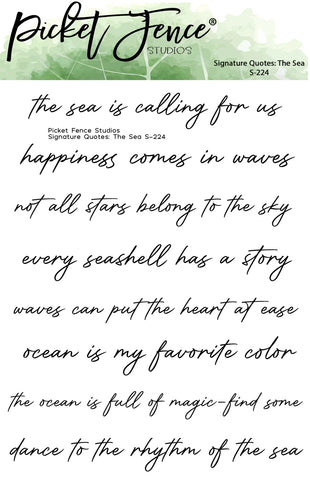 Picket Fence®
STUDIOS
Signature Quotes: The Sea
S-224
the sea is calling for us
Picket Fence Studios
Signature Quotes: The Sea S-224
happiness comes in waves
not all stars belong to the sky
every seashell has a story
waves can put the heart at ease
ocean is my favorite color
the ocean is full of magic-find some
dance to the rhythm of the sea